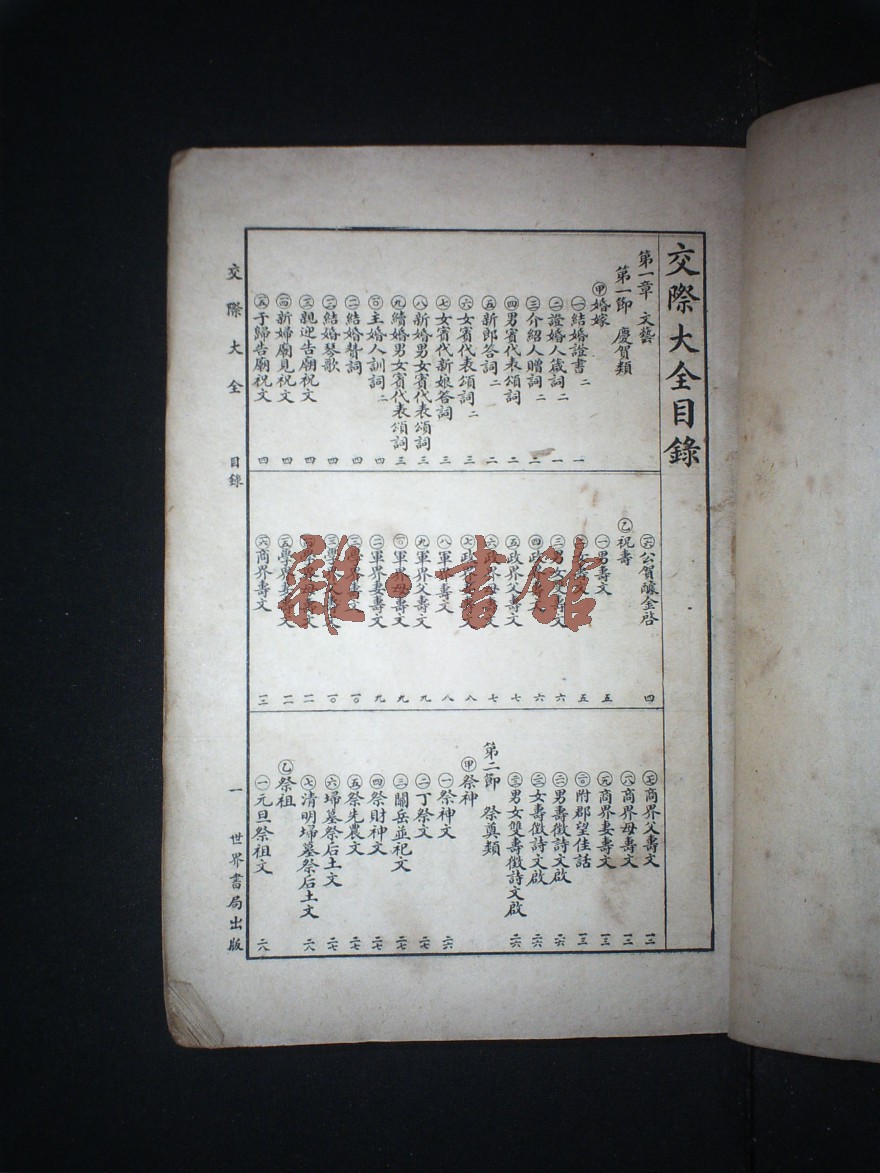 交際大全目錄
第一章 文藝
第一節 慶賀類
㊙甲婚嫁
一結婚證書二 一
二證婚人箴詞二 一
三介紹人贈詞二 二
四男賓代表頌詞 二
五新郎答詞二 二
六女賓代表頌詞二 三
七女賓代新娘答詞 三
八新婚男女賓代表頌詞 三
九續婚男女賓代表頌詞 三
十主婚人訓詞二 四
二結婚贊詞 四
三結婚琴歌 四
三親迎告廟祝文 四
四新婦廟見祝文 四
五于歸告廟祝文 四
六公賀釀金啓 四
乙祝壽
一男壽文 五
五
六
四政 六
五政界父壽文 七
六政界母壽文 七
七政 八
八軍界 壽文 八
九軍界父壽文 九
十軍界母壽文 九
二軍界妻壽文 九
一〇
一〇
一一
五學界妻壽文 一一
六商界壽文 一二
七商界父壽文 一二
八商界母壽文 一二
九商界妻壽文 一三
附郡望佳話 一三
男壽徵詩文啟 二六
女壽徵詩文啟 二六
男女雙壽徵詩文啟 二六
第二節 祭奠類
甲祭神
一祭神文 二六
二丁祭文 二七
三關岳並祀文 二七
四祭財神文 二七
五祭先農文 二七
六埽墓祭后土文 二七
七清明埽墓祭后土文 二八
乙祭祖
一元旦祭祖文 二八
交際大全 目錄 一 世界書局出版
雜·書館